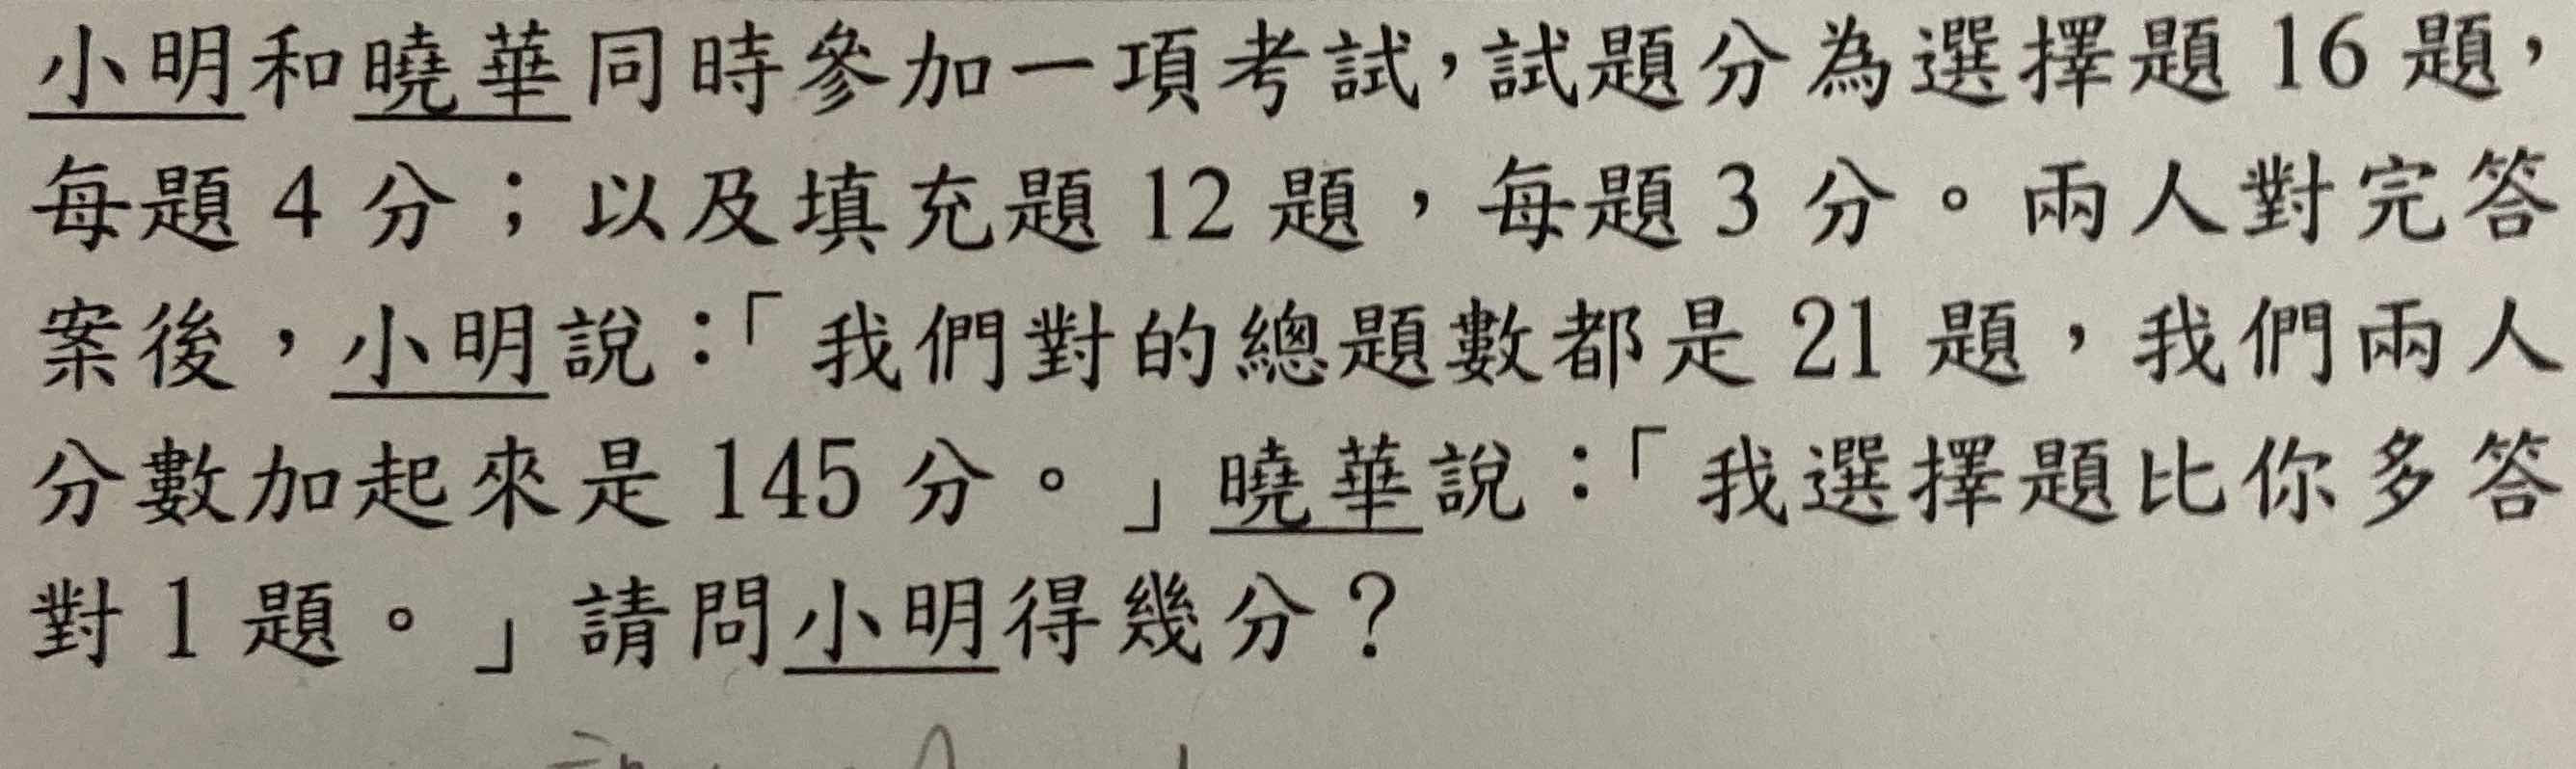 小明和曉華同時參加一項考試，試題分為選擇題 16 題，
每題 4 分；以及填充題 12 題，每題 3 分。兩人對完答
案後，小明說：「我們對的總題數都是 21 題，我們兩人
分數加起來是 145 分。」曉華說：「我選擇題比你多答
對 1 題。」請問小明得幾分？